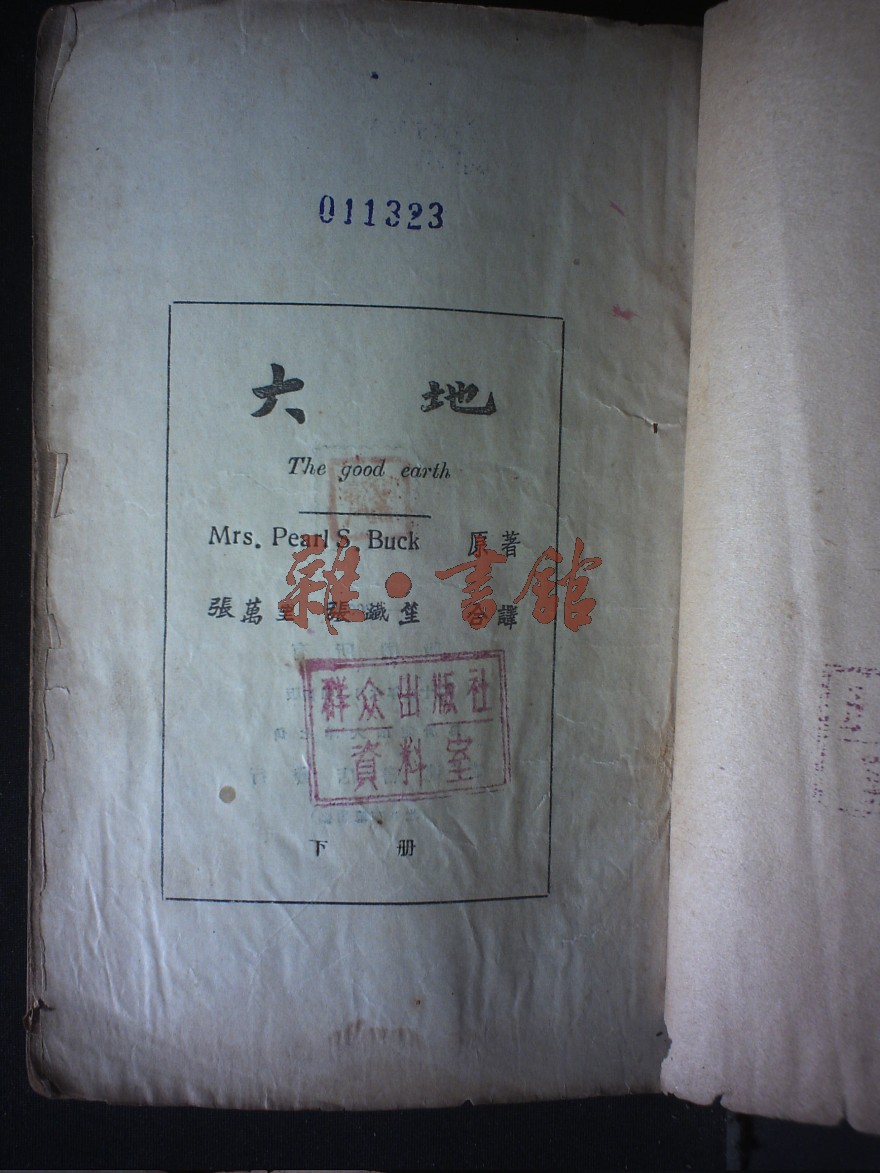 011323
大 地
The good earth
Mrs. Pearl S. Buck 原著
張萬里 張鐵笙 合譯
雜·書館
群众出版社
資料室
下 册